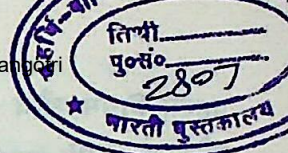 तिथी..................
angotri पु०सं०..................
2807
भारती पुस्तकालय